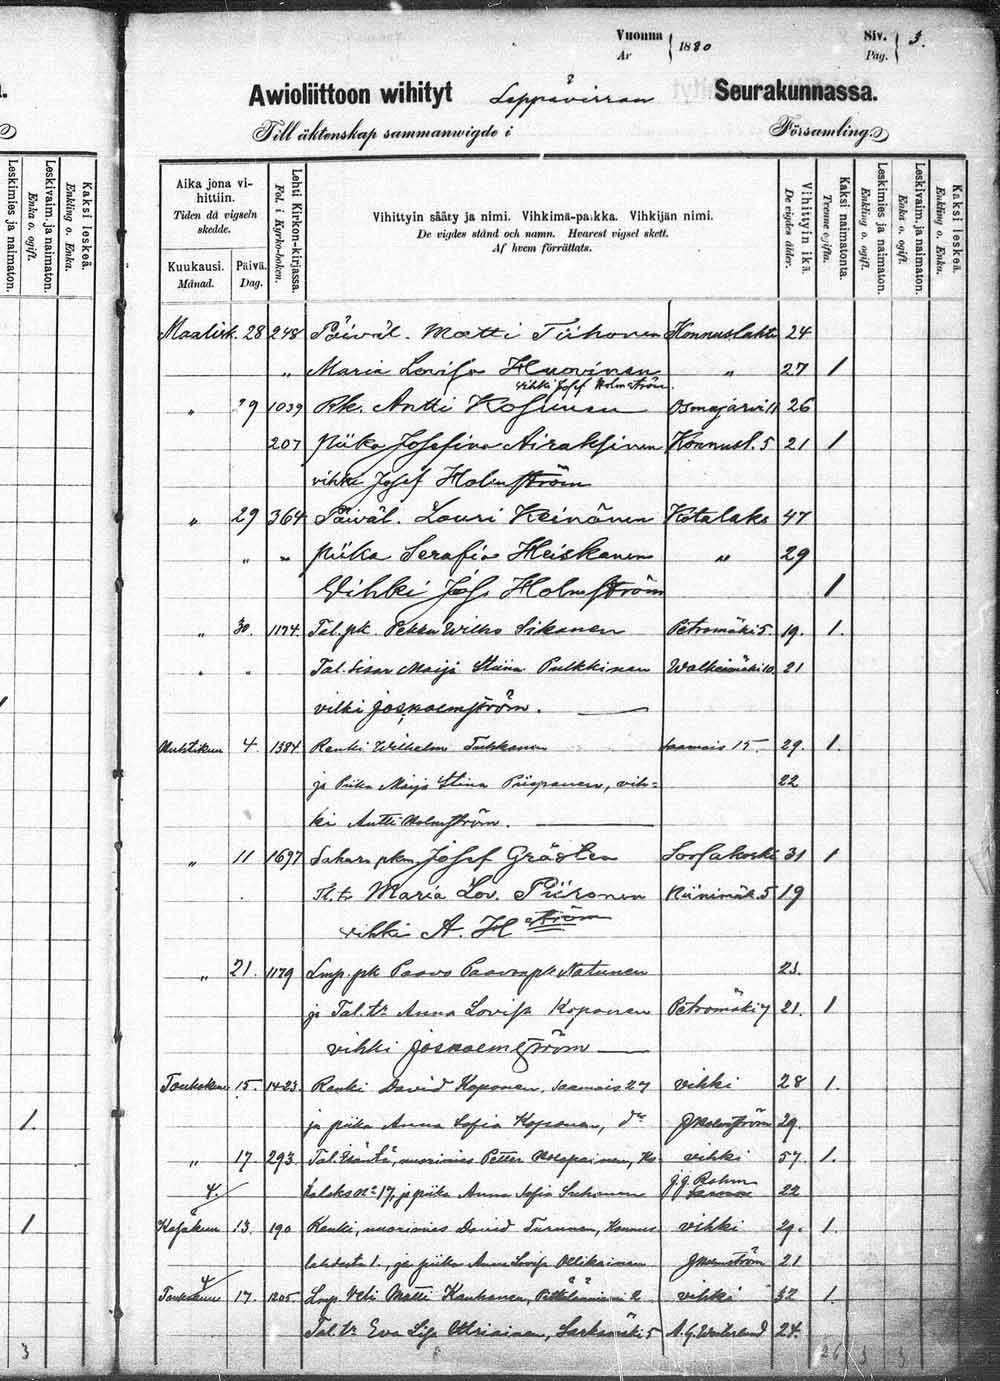 Vuonna 1880 Siv. 3.
År Pag.
Awioliittoon wihityt Leppävirran Seurakunnassa.
Till äktenskap sammanwigde i Församling.
Aika jona vi-
hittiin.
Tiden då vigseln
skedde.
Kuukausi. Päivä.
Månad. Dag.
Lehti Kirkon-kirjassa.
Fol. i Kyrko-boken.
Vihittyin sääty ja nimi. Vihkimä-paikka. Vihkijän nimi.
De vigdes stånd och namn. Hvarest vigsel skett.
Af hvem förrättats.
Vihittyin ikä.
De vigdes ålder.
Kaksi naimatonta.
Tvenne ogifta.
Leskimies ja naimaton.
Enkling o. ogift.
Leskivaim. ja naimaton.
Enka o. ogift.
Kaksi leskeä.
Enkling o. Enka.
Maalisk. 28 248 Päiväl. Matti Tiihonen Konnuslahti 24
" Maria Lovisa Huovinen " 27 1
vihki Josef Holmström.
" 29 1039 Rk. Antti Kosunen Osmajärvi 11 26
207 piika Josefina Airaksinen Konnusl. 5 21 1
vihki Josef Holmström
" 29 364 Päiväl. Lauri Keinänen Kotalaks 47
" " piika Serafia Heiskanen " 29
Vihki Jos Holmström 1
" 30. 1174 Tal. pk. Pekka Wilho Sikanen Petromäki 5. 19. 1.
" " Tal. sisar Maija Stiina Pulkkinen Walkeimäki 10. 21
vihki Jos Holmström.
Huhtikuu 4. 1384 Renki Wilhelm Tukkanen Saamais 15. 29. 1.
ja Piika Maija Stina Piispanen, vih= 22
ki Antti Holmström.
" 11 1697 Sahara pkm Josef Gråsten Sorsakoski 31 1
Tl. tr Maria Lov. Piironen Niinimäk. 5 19
vihki A. Hström
" 21. 1179 Lmp. pk Paavo Paavonpk Natunen 23.
ja Tal. tr Anna Lovisa Koponen Petromäki 7 21. 1
vihki Jos Holmström
Toukokuu 15. 1423 Renki David Koponen, Saamais 27 vihki 28 1.
ja piika Anna Sofia Koponen, do JHolmström 29.
" 17. 293 Tal. Isäntä, nuorimies Petter Holopainen, Ko- vihki 57. 1.
4. talaks No 17, ja piika Anna Sofia Suhonen J. J. 22
Kesäkuu 13. 190 Renki, nuorimies David Turunen, Konnus vihki 29. 1.
lahdesta 1., ja piika Anna Lovisa Ollikainen JHolmström 21
4
Toukokuu 17. 1205 Lmp. Veli Matti Kauhanen, 2 vihki 32 1.
Tal. tr Eva Lisa Miniainen, Sarkamäki 5 A. G. Westerlund 24.
1.
1
3 26 3 3